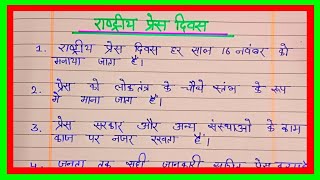 राष्ट्रीय प्रेस दिवस
1. राष्ट्रीय प्रेस दिवस हर साल 16 नवंबर को
मनाया जाता है।
2. प्रेस को लोकतंत्र के चौथे स्तंभ के रूप
में माना जाता है।
3. प्रेस सरकार और अन्य संस्थाओं के काम
काज पर नजर रखता है।
4. जनता तक सही जानकारी